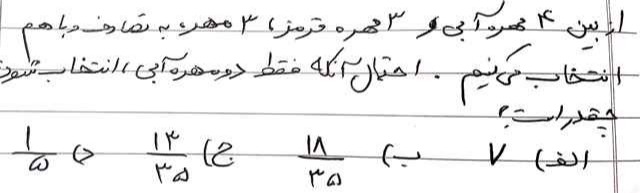 از بین ۴ مهره آبی و ۳ مهره قرمز، ۳ مهره به تصادف و با هم
انتخاب می‌کنیم. احتمال آنکه فقط دو مهره آبی انتخاب شود
چقدر است؟
الف) ۷ ب) ۱۸/۳۵ ج) ۱۳/۳۵ د) ۱/۵